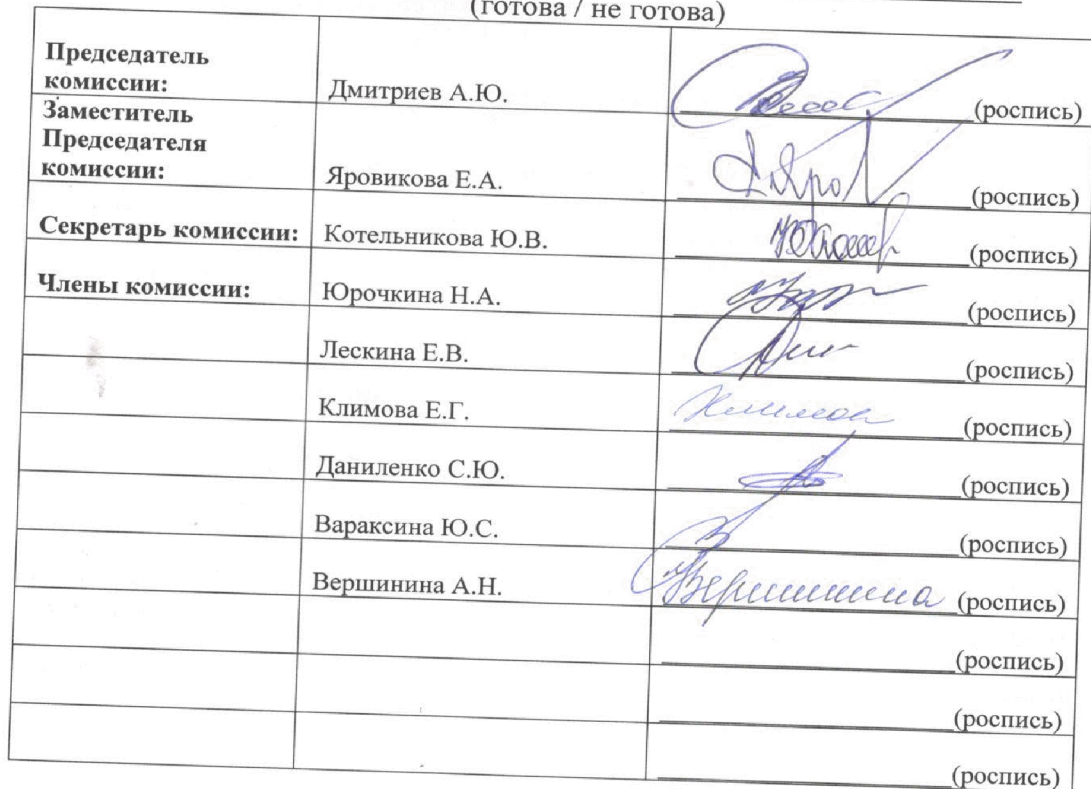 (готова / не готова)
Председатель
комиссии:
Дмитриев А.Ю.
(роспись)
Заместитель
Председателя
комиссии:
Яровикова Е.А.
(роспись)
Секретарь комиссии:
Котельникова Ю.В.
(роспись)
Члены комиссии:
Юрочкина Н.А.
(роспись)
Лескина Е.В.
(роспись)
Климова Е.Г.
(роспись)
Даниленко С.Ю.
(роспись)
Вараксина Ю.С.
(роспись)
Вершинина А.Н.
Вершинина (роспись)
(роспись)
(роспись)
(роспись)